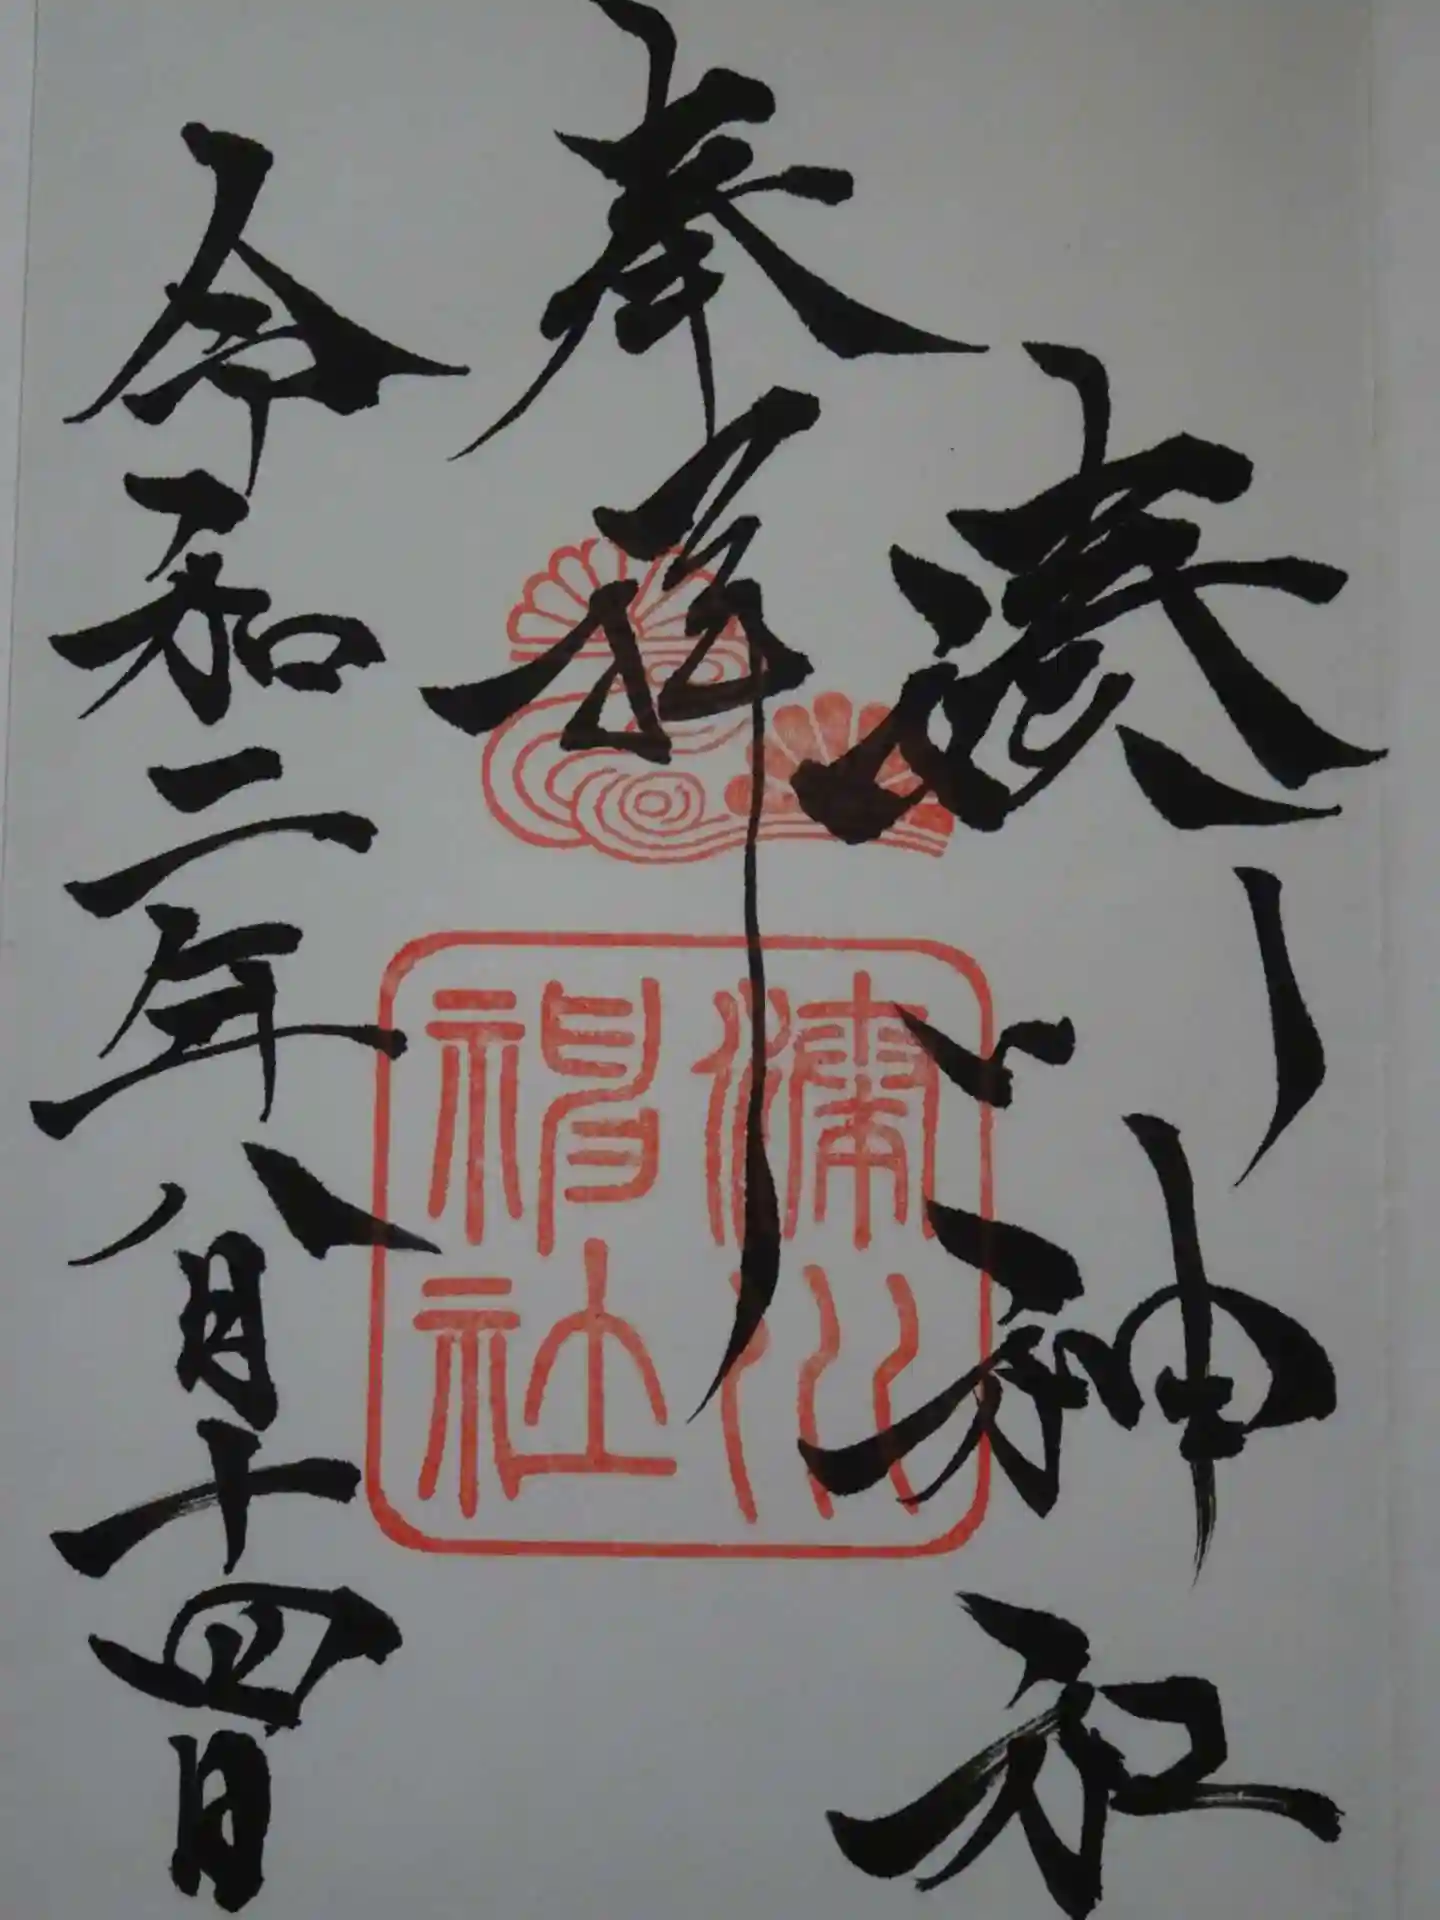 湊川神社
奉拝
令和二年八月十四日
湊川
神社